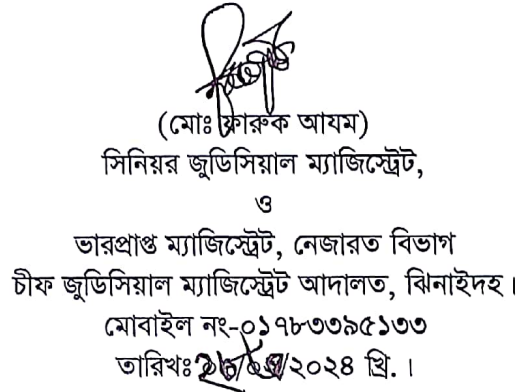 (মোঃ ফারুক আযম)
সিনিয়র জুডিসিয়াল ম্যাজিস্ট্রেট,
ও
ভারপ্রাপ্ত ম্যাজিস্ট্রেট, নেজারত বিভাগ
চীফ জুডিসিয়াল ম্যাজিস্ট্রেট আদালত, ঝিনাইদহ।
মোবাইল নং-০১৭৮৩৩৯৫১৩৩
তারিখঃ /২০২৪ খ্রি.।